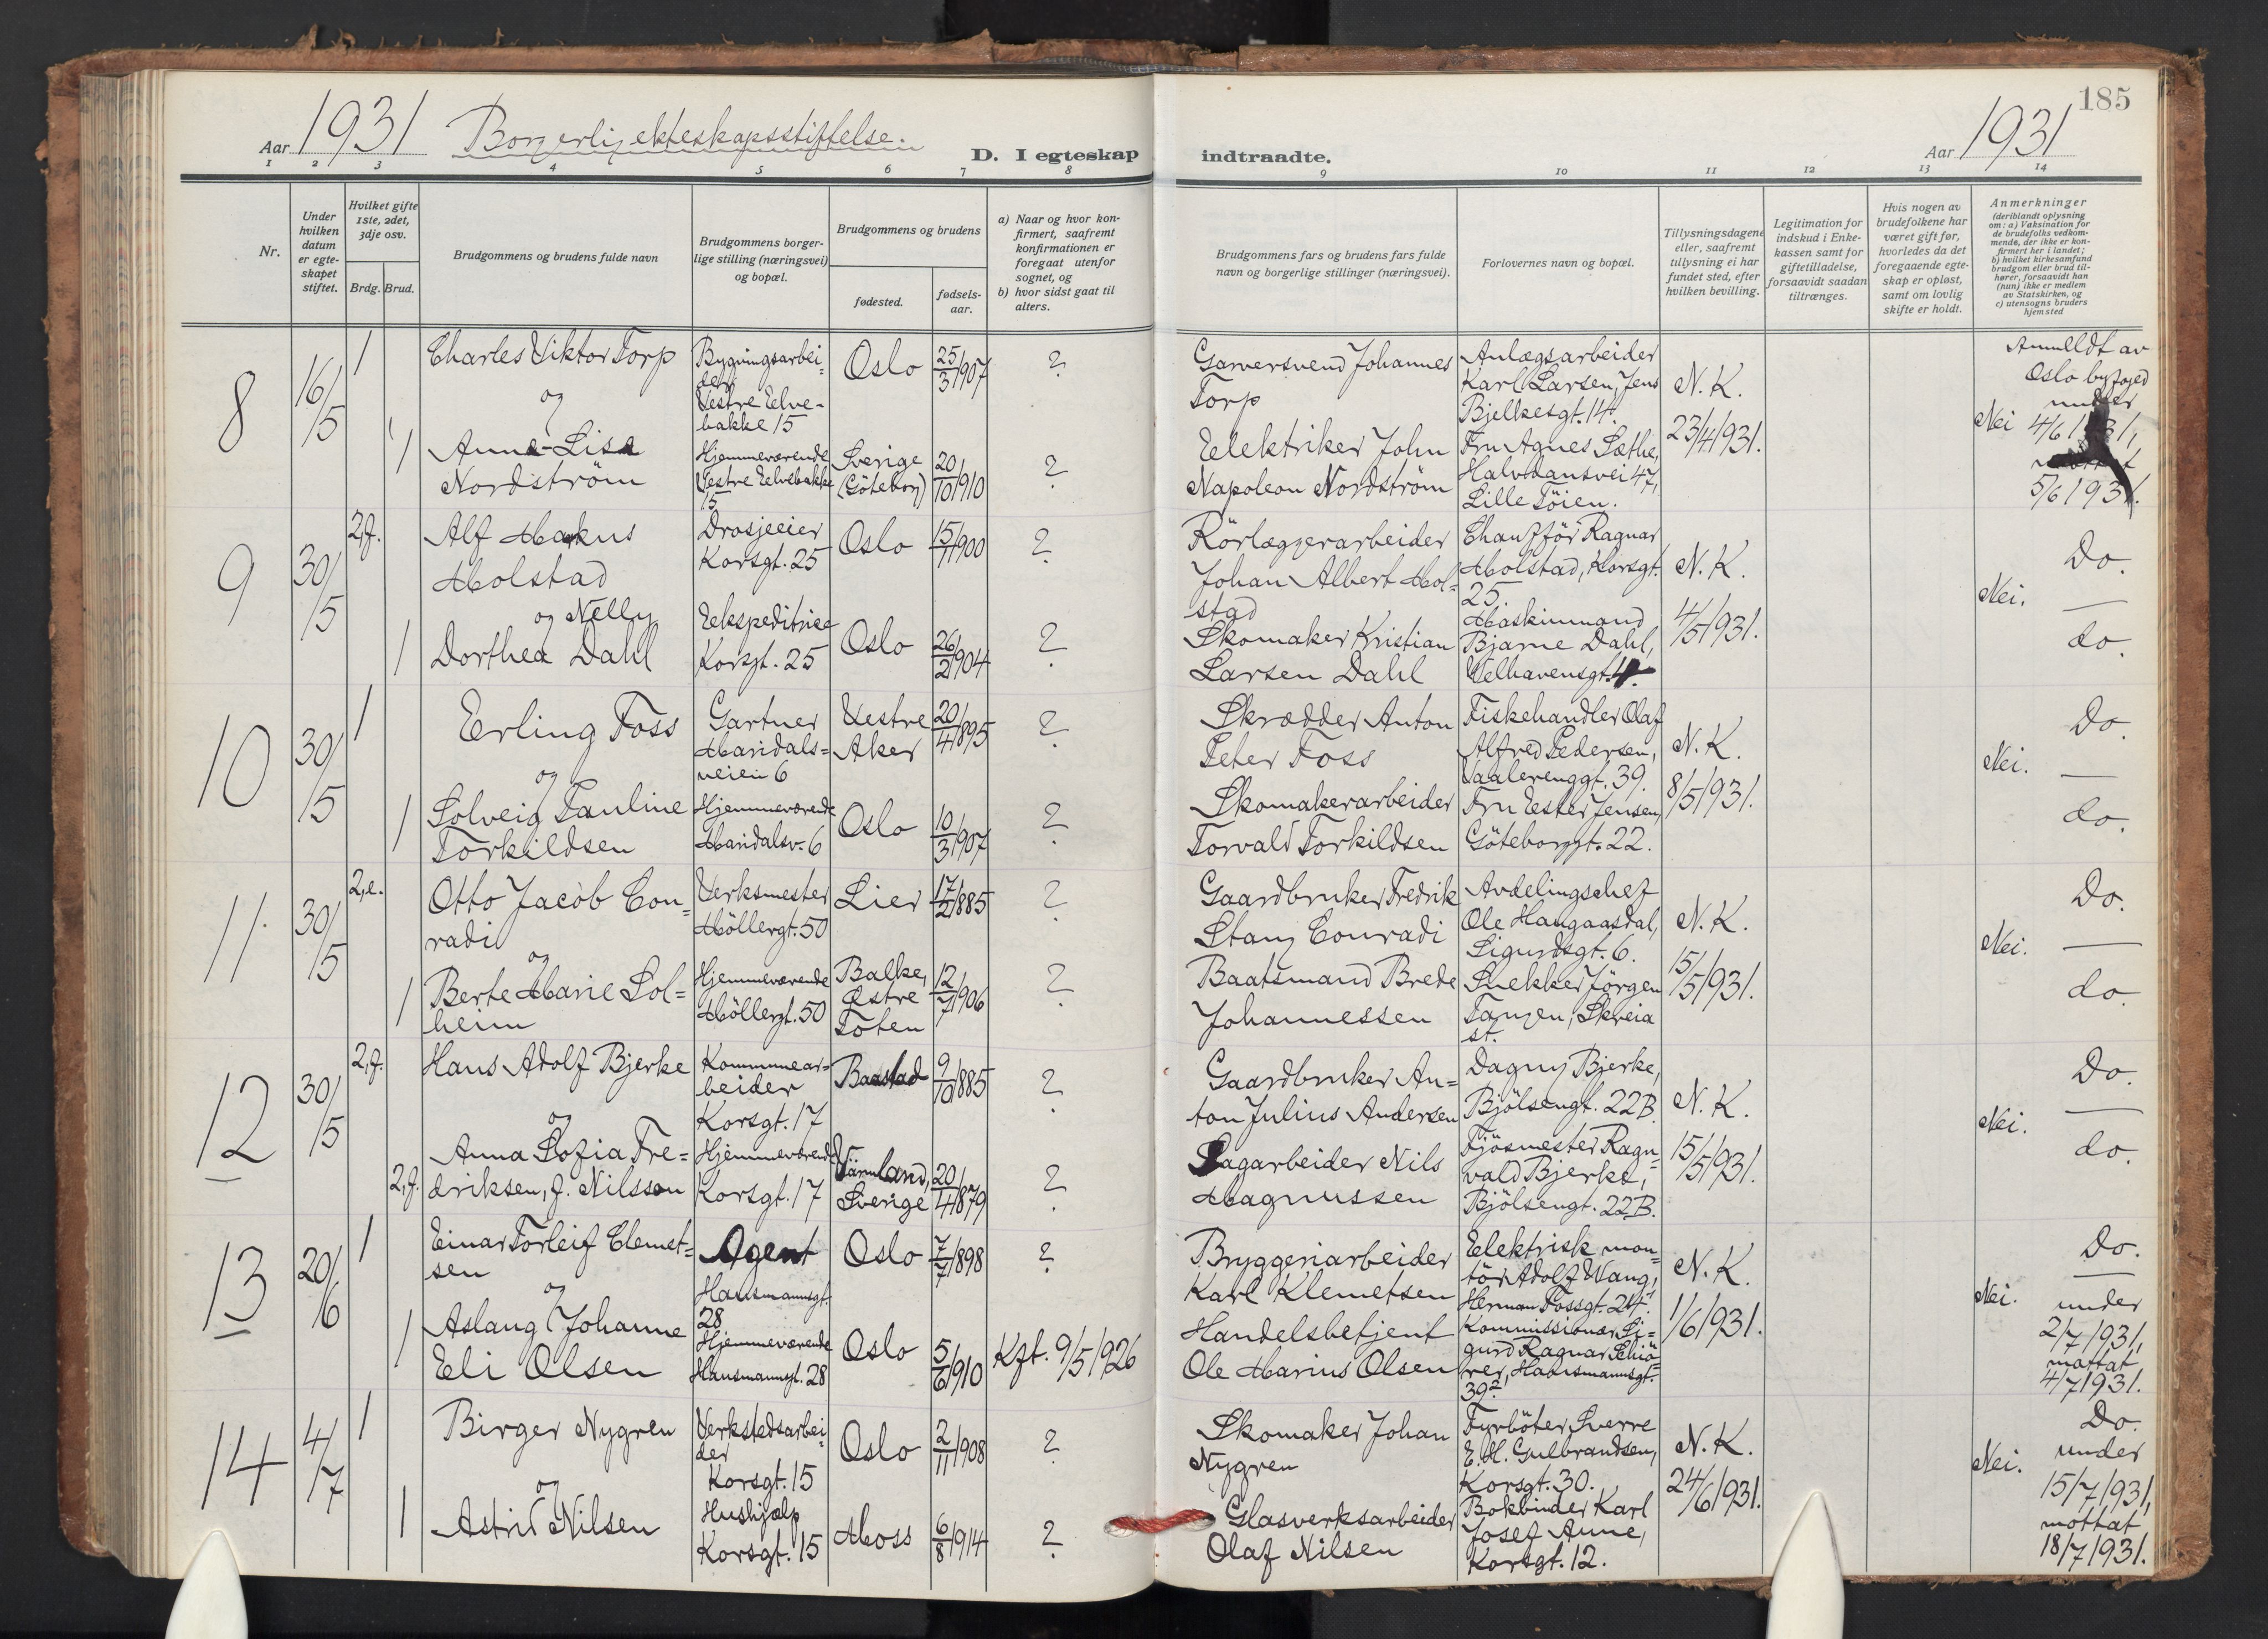 185
Aar 1931 Borgerlig ekteskapsstiftelse.
D. I egteskap indtraadte.
Aar 1931
1 2 3 4 5 6 7 8 9 10 11 12 13 14
Nr.
Under
hvilken
datum
er egte-
skapet
stiftet.
Hvilket gifte
1ste, 2det,
3dje osv.
Brdg. Brud.
Brudgommens og brudens fulde navn
Brudgommens borger-
lige stilling (næringsvei)
og bopæl.
Brudgommens og brudens
fødested.
fødsels-
aar.
a) Naar og hvor kon-
firmert, saafremt
konfirmationen er
foregaat utenfor
sognet, og
b) hvor sidst gaat til
alters.
Brudgommens fars og brudens fars fulde
navn og borgerlige stillinger (næringsvei).
Forlovernes navn og bopæl.
Tillysningsdagene
eller, saafremt
tillysning ei har
fundet sted, efter
hvilken bevilling.
Legitimation for
indskud i Enke-
kassen samt for
giftetilladelse,
forsaavidt saadan
tiltrænges.
Hvis nogen av
brudefolkene har
været gift før,
hvorledes da det
foregaaende egte-
skap er opløst,
samt om lovlig
skifte er holdt.
Anmerkninger
(deriblandt oplysning
om: a) Vaksination for
de brudefolks vedkom-
mende, der ikke er kon-
firmert her i landet;
b) hvilket kirkesamfund
brudgom eller brud til-
hører, forsaavidt han
(hun) ikke er medlem
av Statskirken, og
c) utensogns bruders
hjemsted
8
16/5
1
Charles Viktor Torp
og
Bygningsarbei=
der
Vestre Elve-
bakke 15
Oslo
25/3 1907
?
Garversvend Johannes
Torp
Anlægsarbeider
Karl Larsen, Jens
Bjelkesgt. 14.
N. K.
23/4 1931.
Nei
Anmeldt av
Oslo byfoged
under
4/6 1931,
5/6 1931.
1
Anna-Lisa
Nordström
Hjemmeværende
Vestre Elvebakke
15
Sverige
(Göteborg)
20/10 1910
?
Elektriker John
Napoleon Nordström
Fru Agnes Sæthe,
Halvdansvei 47,
Lille Töien.
9
30/5
2, f.
Alf Markus
Molstad
Drosjeeier
Korsgt. 25
Oslo
15/11 1900
?
Rörlæggerarbeider
Johan Albert Mol=
stad
Chaufför Ragnar
Molstad, Korsgt.
25.
N. K.
4/5 1931.
Nei.
Do.
—
do.
1
og Nelly
Dorthea Dahl
Ekspeditrice
Korsgt. 25
Oslo
26/2 1904
?
Skomaker Kristian
Larsen Dahl
Maskinmand
Bjarne Dahl,
Welhavensgt. 4.
10
30/5
1
Erling Foss
og
Gartner
Maridals=
veien 6
Vestre
Aker
20/4 1895
?
Skrædder Anton
Peter Foss
Fiskehandler Olaf
Alfred Pedersen,
Vaalerenggt. 39.
N. K.
8/5 1931.
Nei.
Do.
—
do.
1
Solveig Pauline
Torkildsen
Hjemmeværende
Maridalsv. 6
Oslo
10/3 1907
?
Skomakerarbeider
Torvald Torkildsen
Fru Ester Jensen,
Göteborggt. 22.
11.
30/5
2, e.
Otto Jacob Con=
radi
og
Verksmester
Möllergt. 50
Lier
17/2 1885
?
Gaardbruker Fredrik
Stang Conradi
Avdelingschef
Ole Haugaasdal,
Sigurdsgt. 6.
N. K.
15/5 1931.
Nei.
Do.
—
do.
1
Berte Marie Sol=
heim
Hjemmeværende
Möllergt. 50
Balke,
Østre
Toten
12/7 1906
?
Baatsmand Brede
Johannessen
Snekker Jörgen
Tangen, Skreia
st.
12
30/5
2, f.
Hans Adolf Bjerke
og
Kommunear=
beider
Korsgt. 17
Baastad
9/10 1885
?
Gaardbruker An=
ton Julius Andersen
Dagny Bjerke,
Bjölsengt. 22B.
N. K.
15/5 1931.
Nei.
Do.
—
do.
2, f.
Anna Sofia Fre=
driksen, f. Nilsson
Hjemmeværende
Korsgt. 17
Värmland,
Sverige
20/4 1879
?
Sagarbeider Nils
Magnussen
Fjösmester Ragn=
vald Bjerke,
Bjölsengt. 22B.
13
20/6
1
Einar Torleif Clemet=
sen
og
Agent
Hausmannsgt.
28
Oslo
7/7 1898
?
Bryggeriarbeider
Karl Klemetsen
Elektrisk mon=
tör Adolf Wang,
Herman Fossgt. 24.
N. K.
1/6 1931.
Nei.
Do.
—
under
2/7 1931,
mottat
4/7 1931.
1
Aslaug Johanne
Eli Olsen
Hjemmeværende
Hausmannsgt. 28
Oslo
5/6 1910
Kft. 9/5 1926
Handelsbetjent
Ole Marius Olsen
Kommissionær Si=
gurd Ragnar Schiö=
rer, Hausmannsgt.
39²
14
4/7
1
Birger Nygren
og
Verkstedsarbei=
der
Korsgt. 15
Oslo
2/11 1908
?
Skomaker Johan
Nygren
Fyrböter Sverre
E. H. Gulbrandsen,
Korsgt. 30.
N. K.
24/6 1931.
Nei.
Do.
under
15/7 1931,
mottat
18/7 1931.
1
Astrid Nilsen
Hushjælp
Korsgt. 15
Moss
6/8 1914
?
Glasverksarbeider
Olaf Nilsen
Bokbinder Karl
Josef Anne,
Korsgt. 12.